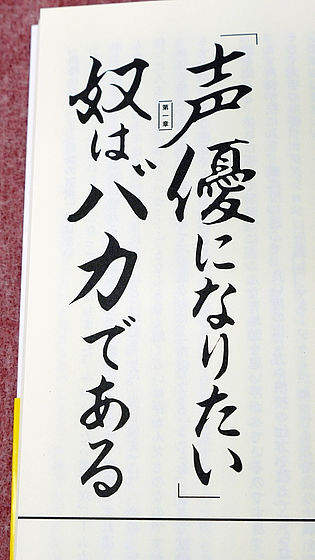 第一章
「声優になりたい」
奴はバカである